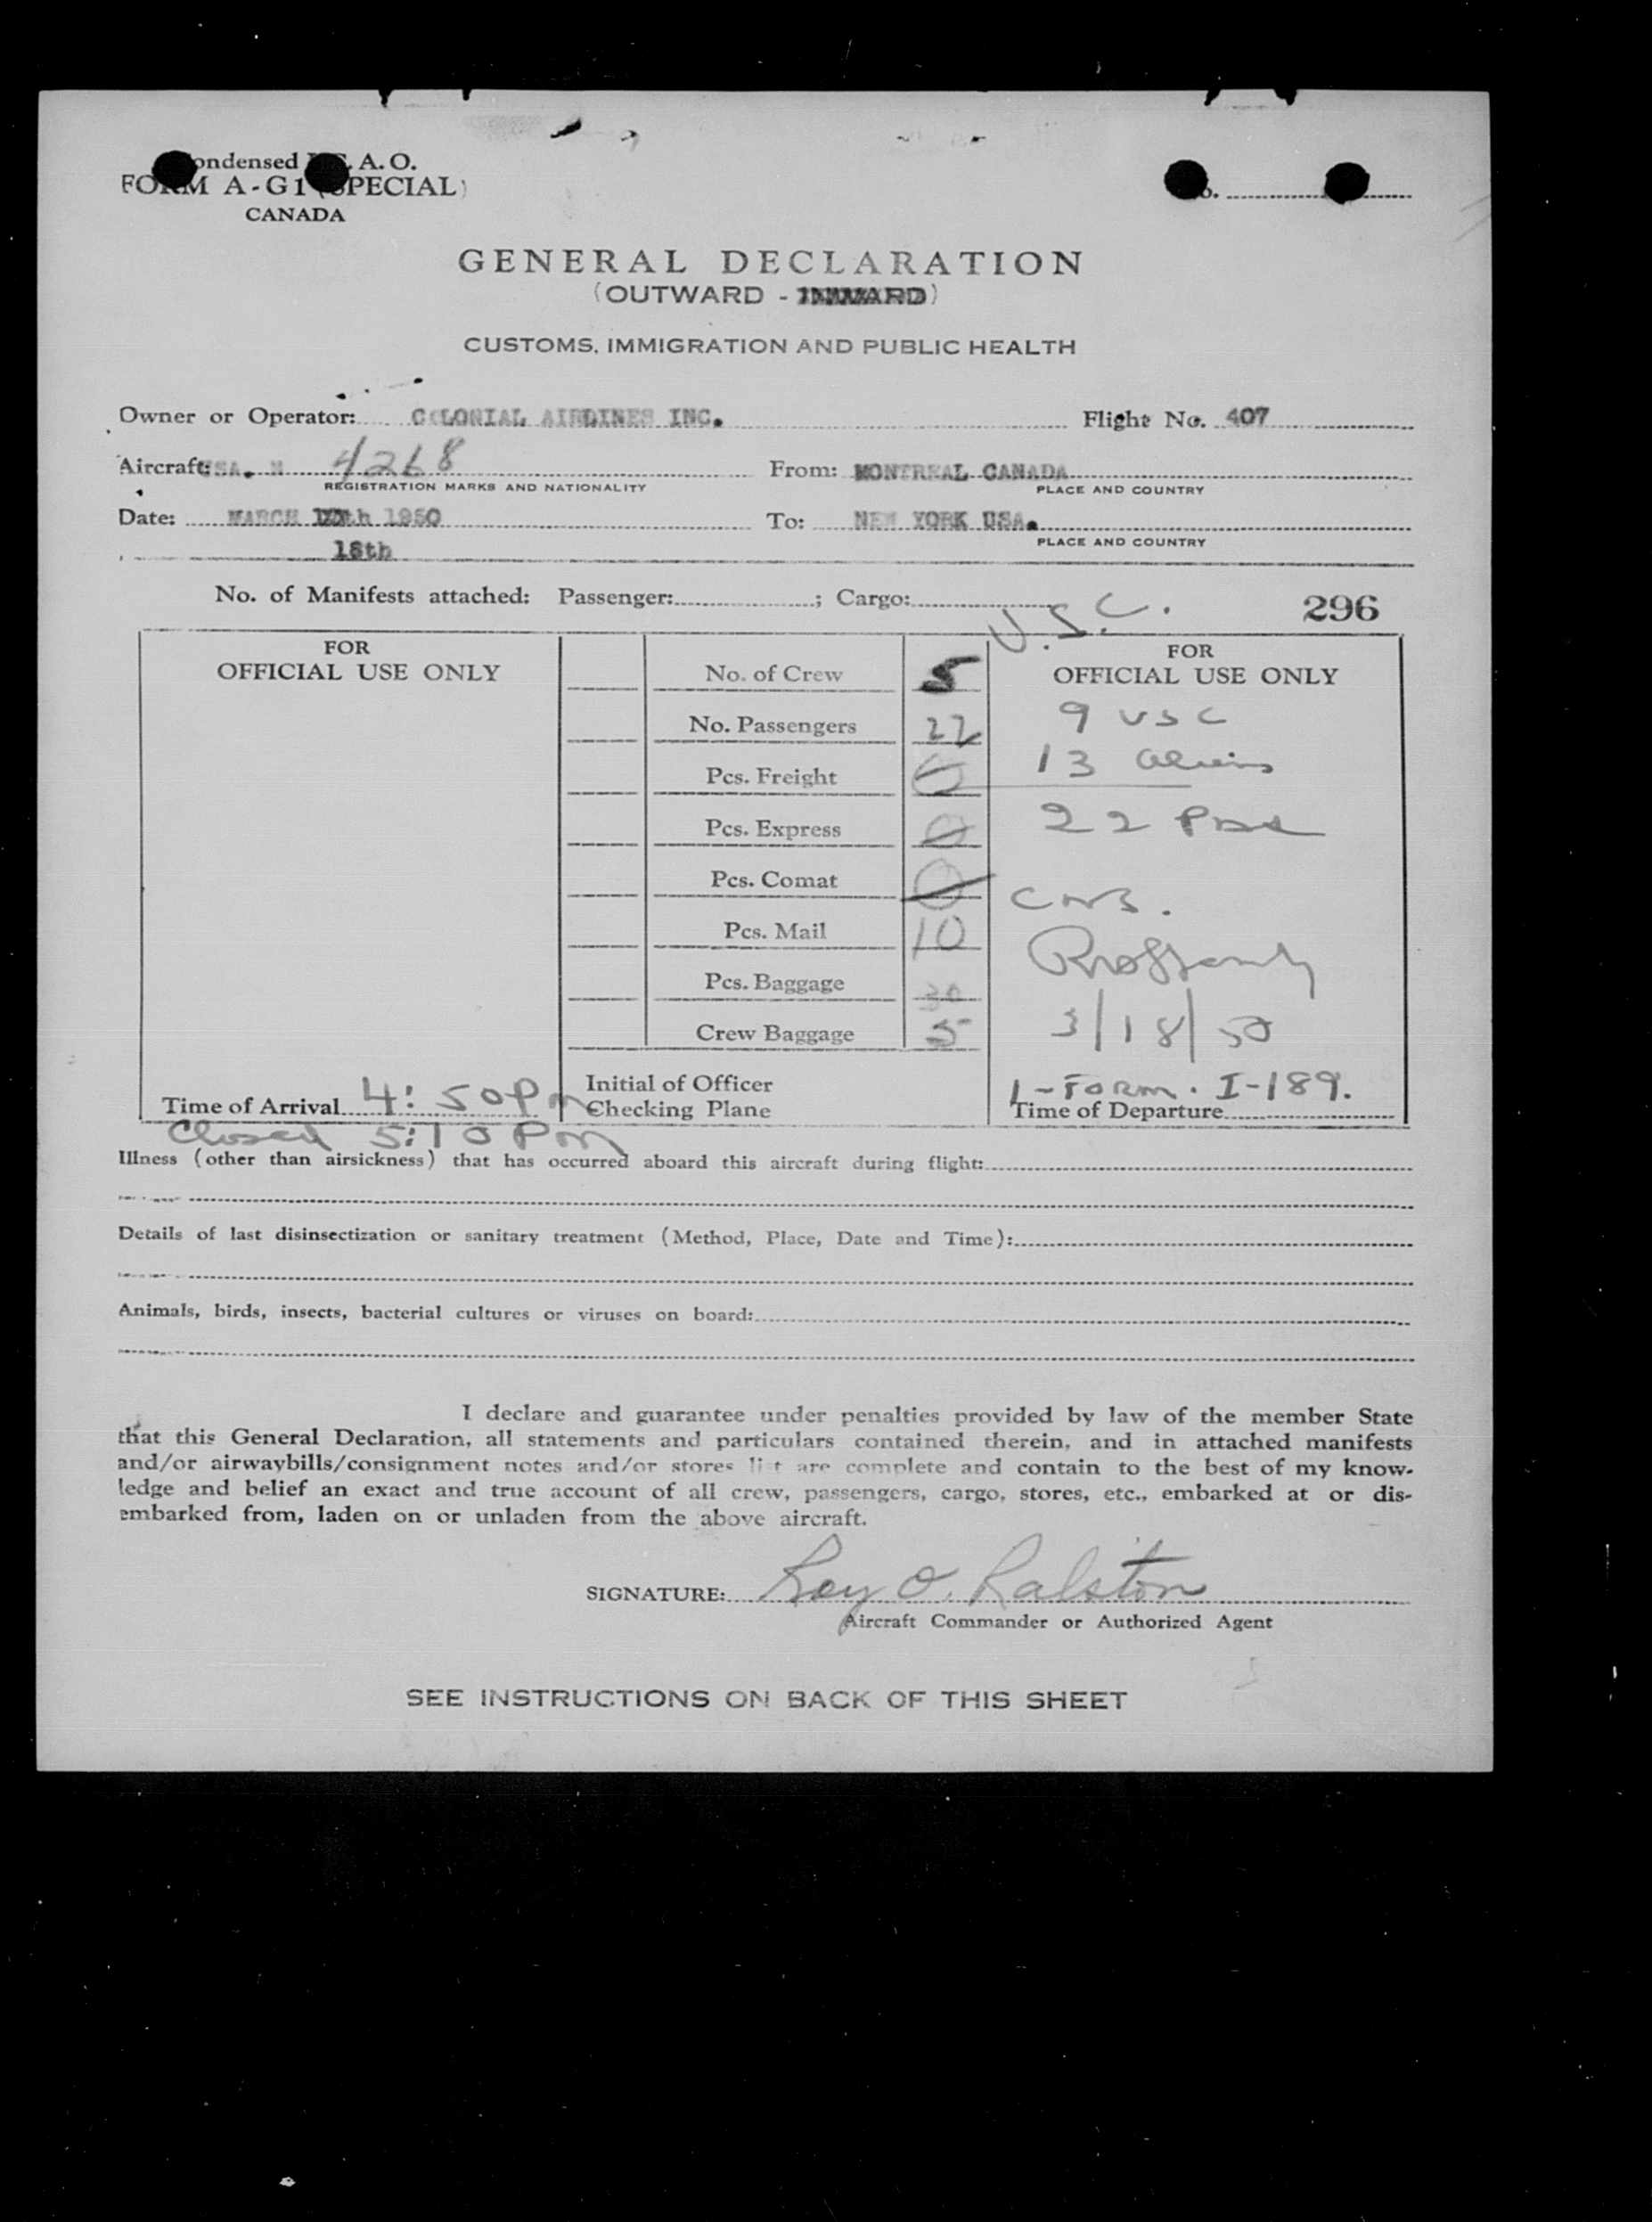 Condensed I.C.A.O.
FORM A-G1 (SPECIAL)
CANADA
GENERAL DECLARATION
(OUTWARD - INWARD)
CUSTOMS, IMMIGRATION AND PUBLIC HEALTH
Owner or Operator: COLONIAL AIRLINES INC. Flight No. 407
Aircraft: USA. N 4268 From: MONTREAL CANADA
REGISTRATION MARKS AND NATIONALITY PLACE AND COUNTRY
Date: MARCH 1950 To: NEW YORK USA.
18th PLACE AND COUNTRY
No. of Manifests attached: Passenger: ; Cargo: 296
U.S.C.
FOR OFFICIAL USE ONLY
No. of Crew 5
No. Passengers 22
Pcs. Freight 0
Pcs. Express 0
Pcs. Comat 0
Pcs. Mail 10
Pcs. Baggage 30
Crew Baggage 5
FOR OFFICIAL USE ONLY
9 USC
13 aliens
22 Pass
3/18/50
1-FORM. I-189.
Time of Arrival 4:50 Pm Initial of Officer Checking Plane Time of Departure
Closed 5:10 Pm
Illness (other than airsickness) that has occurred aboard this aircraft during flight:
Details of last disinsectization or sanitary treatment (Method, Place, Date and Time):
Animals, birds, insects, bacterial cultures or viruses on board:
I declare and guarantee under penalties provided by law of the member State
that this General Declaration, all statements and particulars contained therein, and in attached manifests
and/or airwaybills/consignment notes and/or stores list are complete and contain to the best of my know-
ledge and belief an exact and true account of all crew, passengers, cargo, stores, etc., embarked at or dis-
embarked from, laden on or unladen from the above aircraft.
SIGNATURE: Roy O. Ralston
Aircraft Commander or Authorized Agent
SEE INSTRUCTIONS ON BACK OF THIS SHEET